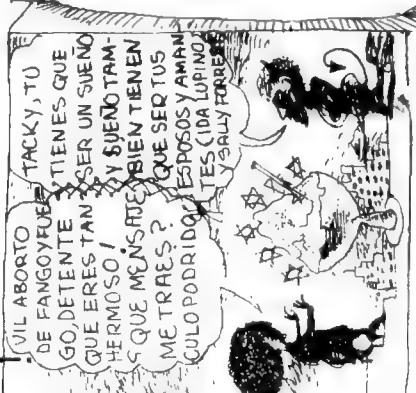 VIL ABORTO
DE FANGO Y FUE
GO, DETENTE
QUE ERES TAN
HERMOSO!
¿QUE MENSAJE
ME TRAES?
CULOPODRIDO!
TACKY, TU
TIENES QUE
SER UN SUEÑO
Y SUEÑO TAM-
BIEN TIENEN
QUE SER TUS
ESPOSOS Y AMAN
TES (IDA LUPINO
Y SALLY FORREST